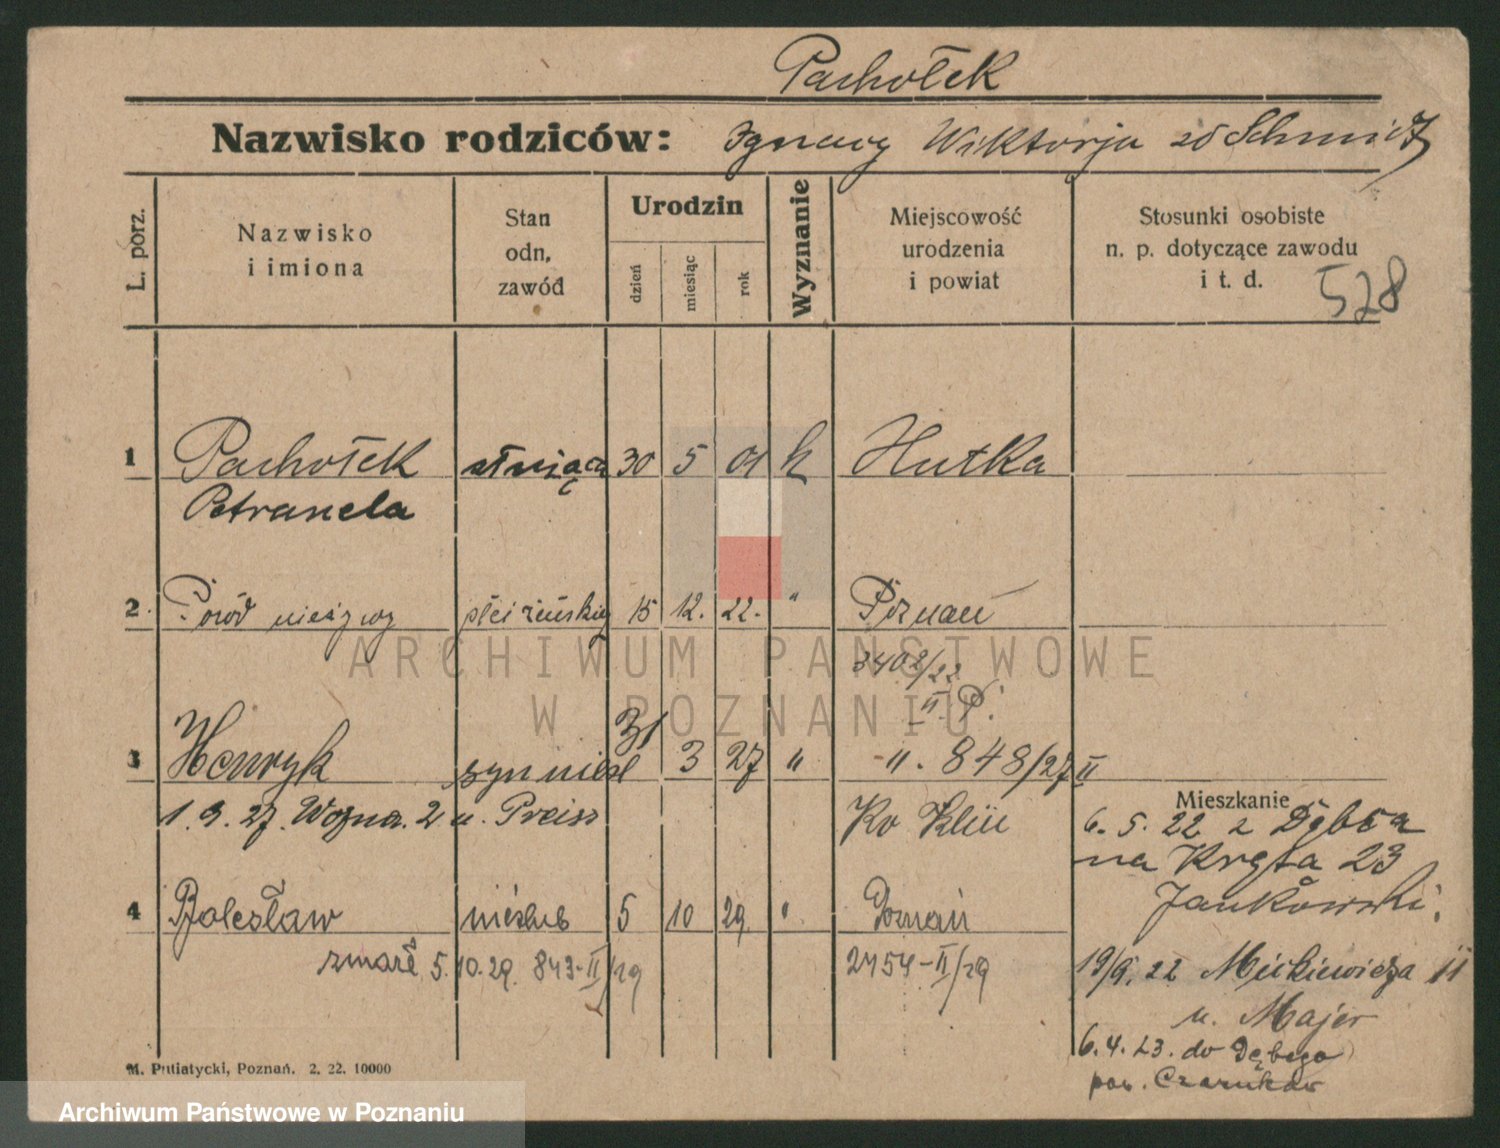 Pachołek
Nazwisko rodziców: Ignacy Wiktorja zd Schmidt
L. porz.
Nazwisko i imiona
Stan odn, zawód
Urodzin
dzień
miesiąc
rok
Wyznanie
Miejscowość urodzenia i powiat
Stosunki osobiste n. p. dotyczące zawodu i t. d.
528
1 Pachołek służąca 30 5 01 k Hutka
Petranela
2 Poród nieżywy płci żeńskiej 15 12. 22. " Poznań
3402/22
II. P.
3 Henryk syn nieśl 31 3 27 " ". 848/27 II
1. 9. 27. Woźna. 2 u. Preiss
Mieszkanie
6. 5. 22 z Dębca
na Kręta 23
Jankowski.
4 Bolesław nieślub 5 10 29. " Poznań
zmarł 5.10.29. 843-II/29 2754-II/29
19/9. 22 Mickiewicza 11
u. Majer
6. 4. 23. do Dębego
pow. Czarnków
M. Putiatycki, Poznań. 2. 22. 10000
ARCHIWUM PAŃSTWOWE
W POZNANIU
Archiwum Państwowe w Poznaniu